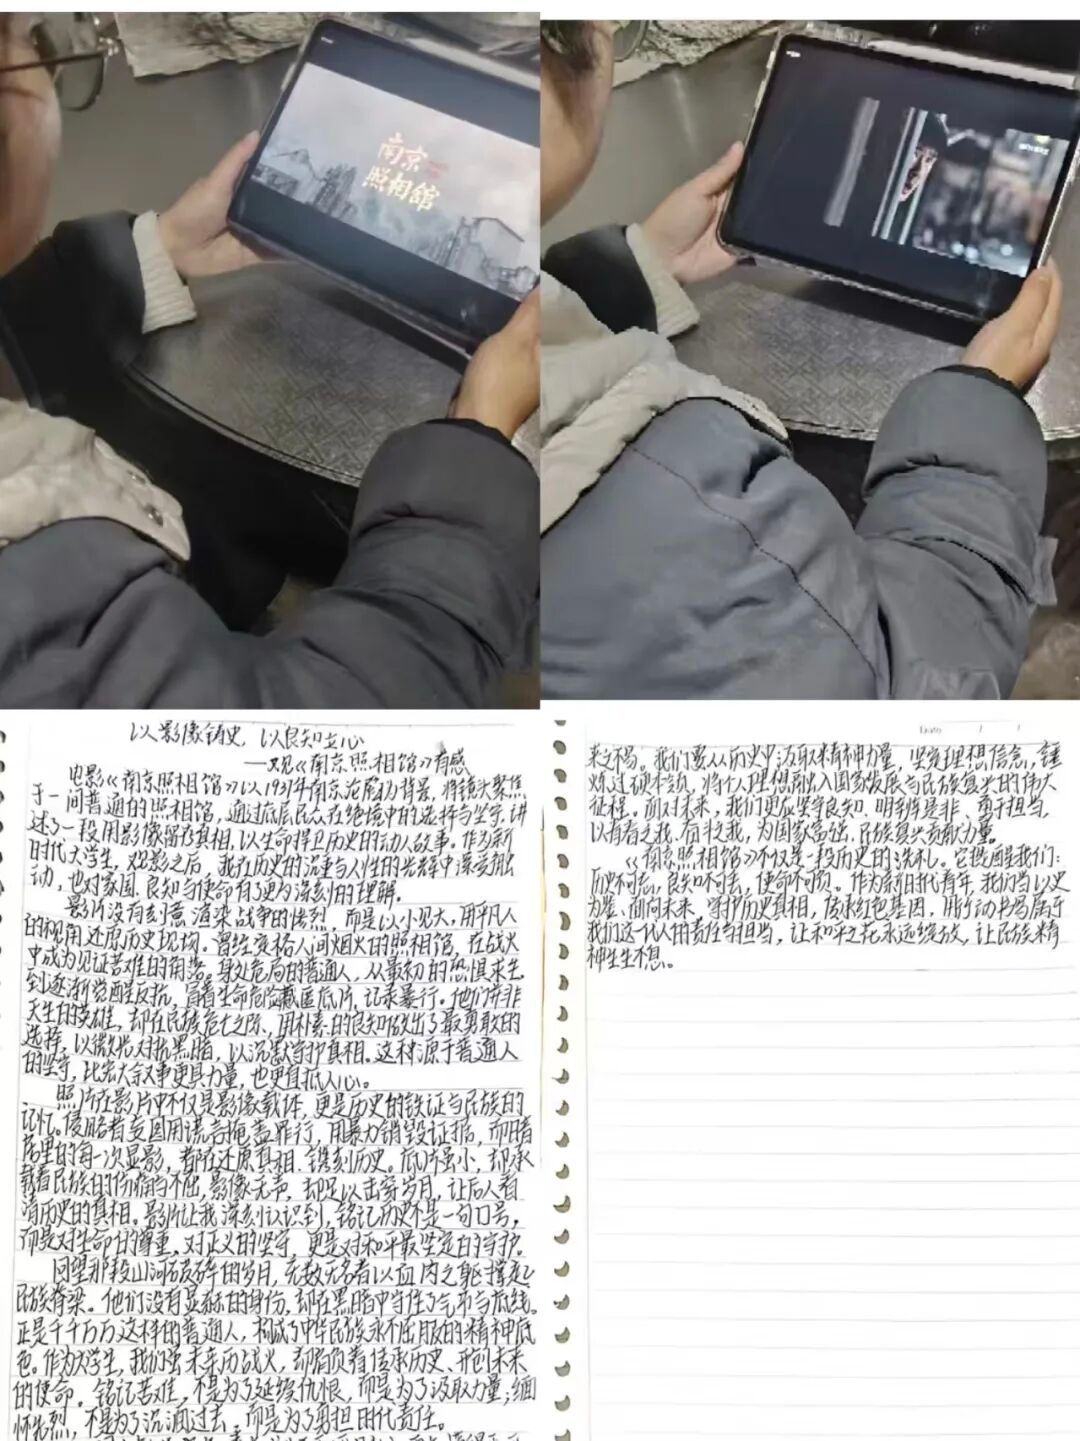 南京
照相館
以影像铸史，以良知立心
——观《南京照相馆》有感
电影《南京照相馆》以1937年南京沦陷为背景，将镜头聚焦
于一间普通的照相馆，通过底层民众在绝境中的选择与坚守，讲
述了一段用影像留存真相，以生命捍卫历史的动人故事。作为新
时代大学生，观影之后，我在历史的沉重与人性的光辉中深受触
动，也对家国、良知与使命有了更为深刻的理解。
影片没有刻意渲染战争的惨烈，而是以小见大，用平凡人
的视角还原历史现场。曾经变格人间烟火的照相馆，在战火
中成为见证苦难的角落。身处危局的普通人，从最初的恐惧求生
到逐渐觉醒反抗，冒着生命危险藏匿底片，记录暴行。他们并非
天生的英雄，却在民族危亡之际，用朴素的良知做出了最勇敢的
选择，以微光对抗黑暗，以沉默守护真相。这种源于普通人
的坚守，比宏大叙事更具力量，也更直抵人心。
照片在影片中不仅是影像载体，更是历史的铁证与民族的
记忆。侵略者妄图用谎言掩盖罪行，用暴力销毁证据，而暗
房里的每一次显影，都在还原真相、镌刻历史。底片虽小，却承
载着民族的伤痛与不屈，影像无声，却足以击穿岁月，让后人看
清历史的真相。影片让我深刻认识到，铭记历史不是一句口号，
而是对生命的尊重，对正义的坚守，更是对和平最坚定的守护。
回望那段山河破碎的岁月，无数无名者以血肉之躯撑起
民族脊梁。他们没有显赫的身份，却在黑暗中守住了气节与底线。
正是千千万万这样的普通人，构成了中华民族永不屈服的精神底
色。作为大学生，我们虽未亲历战火，却肩负着传承历史、开创未来
的使命。铭记苦难，不是为了延续仇恨，而是为了汲取力量；缅
怀先烈，不是为了沉湎过去，而是为了勇担时代责任。
Date / /
来之不易。我们要从历史中汲取精神力量，坚定理想信念，锤
炼过硬本领，将个人理想融入国家发展与民族复兴的伟大
征程。面对未来，我们更应坚守良知、明辨是非、勇于担当，
以有为之我、奋斗之我，为国家富强、民族复兴贡献力量。
《南京照相馆》不仅是一段历史的洗礼。它提醒我们：
历史不可忘，良知不可丢，使命不可负。作为新时代青年，我们当以史
为鉴、面向未来，守护历史真相，传承红色基因，用行动书写属于
我们这一代人的责任与担当，让和平之花永远绽放，让民族精
神生生不息。